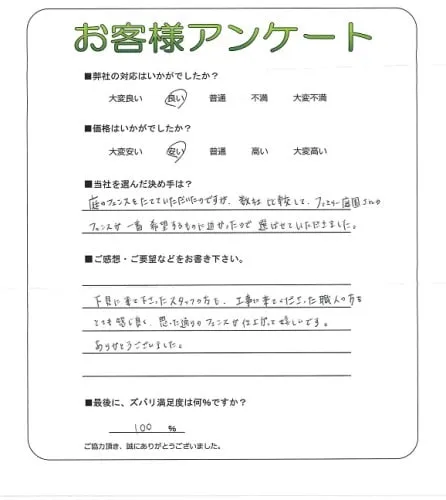 お客様アンケート
■弊社の対応はいかがでしたか?
大変良い 良い 普通 不満 大変不満
■価格はいかがでしたか?
大変安い 安い 普通 高い 大変高い
■当社を選んだ決め手は?
庭のフェンスをたてていただいたのですが、数社比較して、ファミリー庭園さんの
フェンスが一番希望するものに近かったので選ばせていただきました。
■ご感想・ご要望などをお書き下さい。
下見に来て下さったスタッフの方も、工事に来てくださった職人の方も
とても感じ良く、思った通りのフェンスが仕上がって嬉しいです。
ありがとうございました。
■最後に、ズバリ満足度は何%ですか?
100 %
ご協力頂き、誠にありがとうございました。